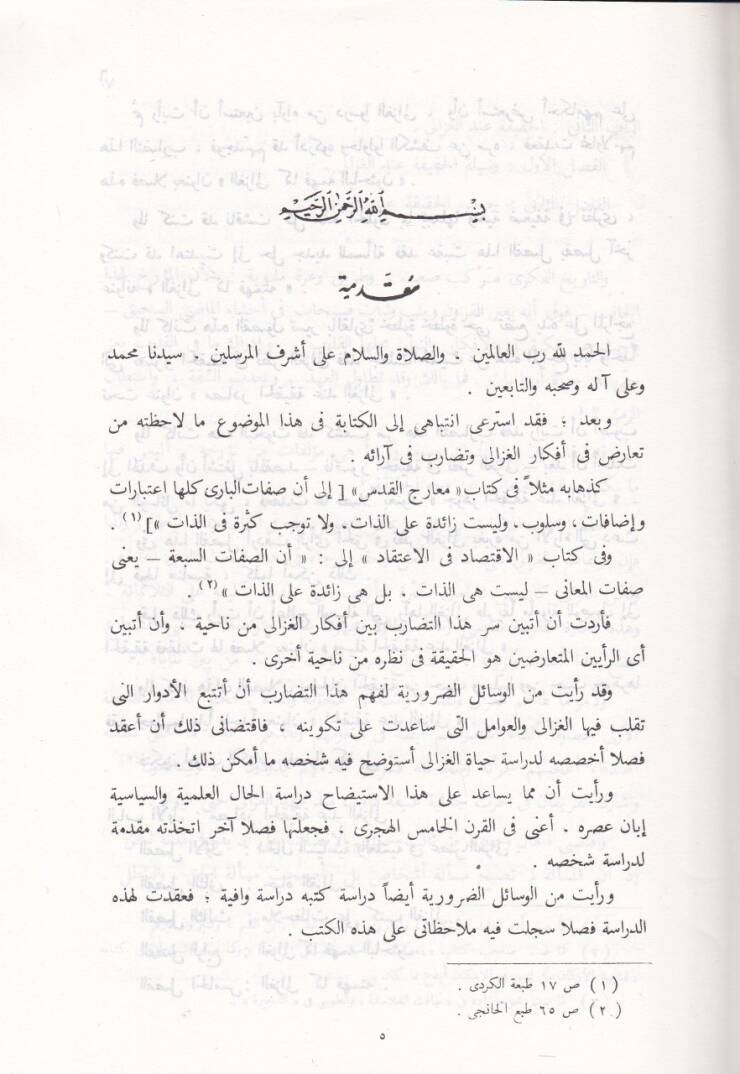 بسم الله الرحمن الرحيم
مقدمة
الحمد لله رب العالمين . والصلاة والسلام على أشرف المرسلين . سيدنا محمد
وعلى آله وصحبه والتابعين .
وبعد ؛ فقد استرعى انتباهى إلى الكتابة فى هذا الموضوع ما لاحظته من
تعارض فى أفكار الغزالى وتضارب فى آرائه .
كذهابه مثلاً فى كتاب « معارج القدس » [ إلى أن صفات البارى كلها اعتبارات
وإضافات ، وسلوب . وليست زائدة على الذات . ولا توجب كثرة فى الذات » ] (١) .
وفى كتاب « الاقتصاد فى الاعتقاد » إلى : « أن الصفات السبعة – يعنى
صفات المعانى – ليست هى الذات . بل هى زائدة على الذات » (٢) .
فأردت أن أتبين سر هذا التضارب بين أفكار الغزالى من ناحية . وأن أتبين
أى الرأيين المتعارضين هو الحقيقة فى نظره من ناحية أخرى .
وقد رأيت من الوسائل الضرورية لفهم هذا التضارب أن أتتبع الأدوار التى
تقلب فيها الغزالى والعوامل التى ساعدت على تكوينه ، فاقتضانى ذلك أن أعقد
فصلا أخصصه لدراسة حياة الغزالى أستوضح فيه شخصه ما أمكن ذلك .
ورأيت أن مما يساعد على هذا الاستيضاح دراسة الحال العلمية والسياسية
إبان عصره . أعنى فى القرن الخامس الهجرى . فجعلتها فصلا آخر اتخذته مقدمة
لدراسة شخصه .
ورأيت من الوسائل الضرورية أيضاً دراسة كتبه دراسة وافية ؛ فعقدت لهذه
الدراسة فصلا سجلت فيه ملاحظاتى على هذه الكتب .
(١) ص ١٧ طبعة الكردى .
(٢) ص ٦٥ طبع الخانجى .
٥